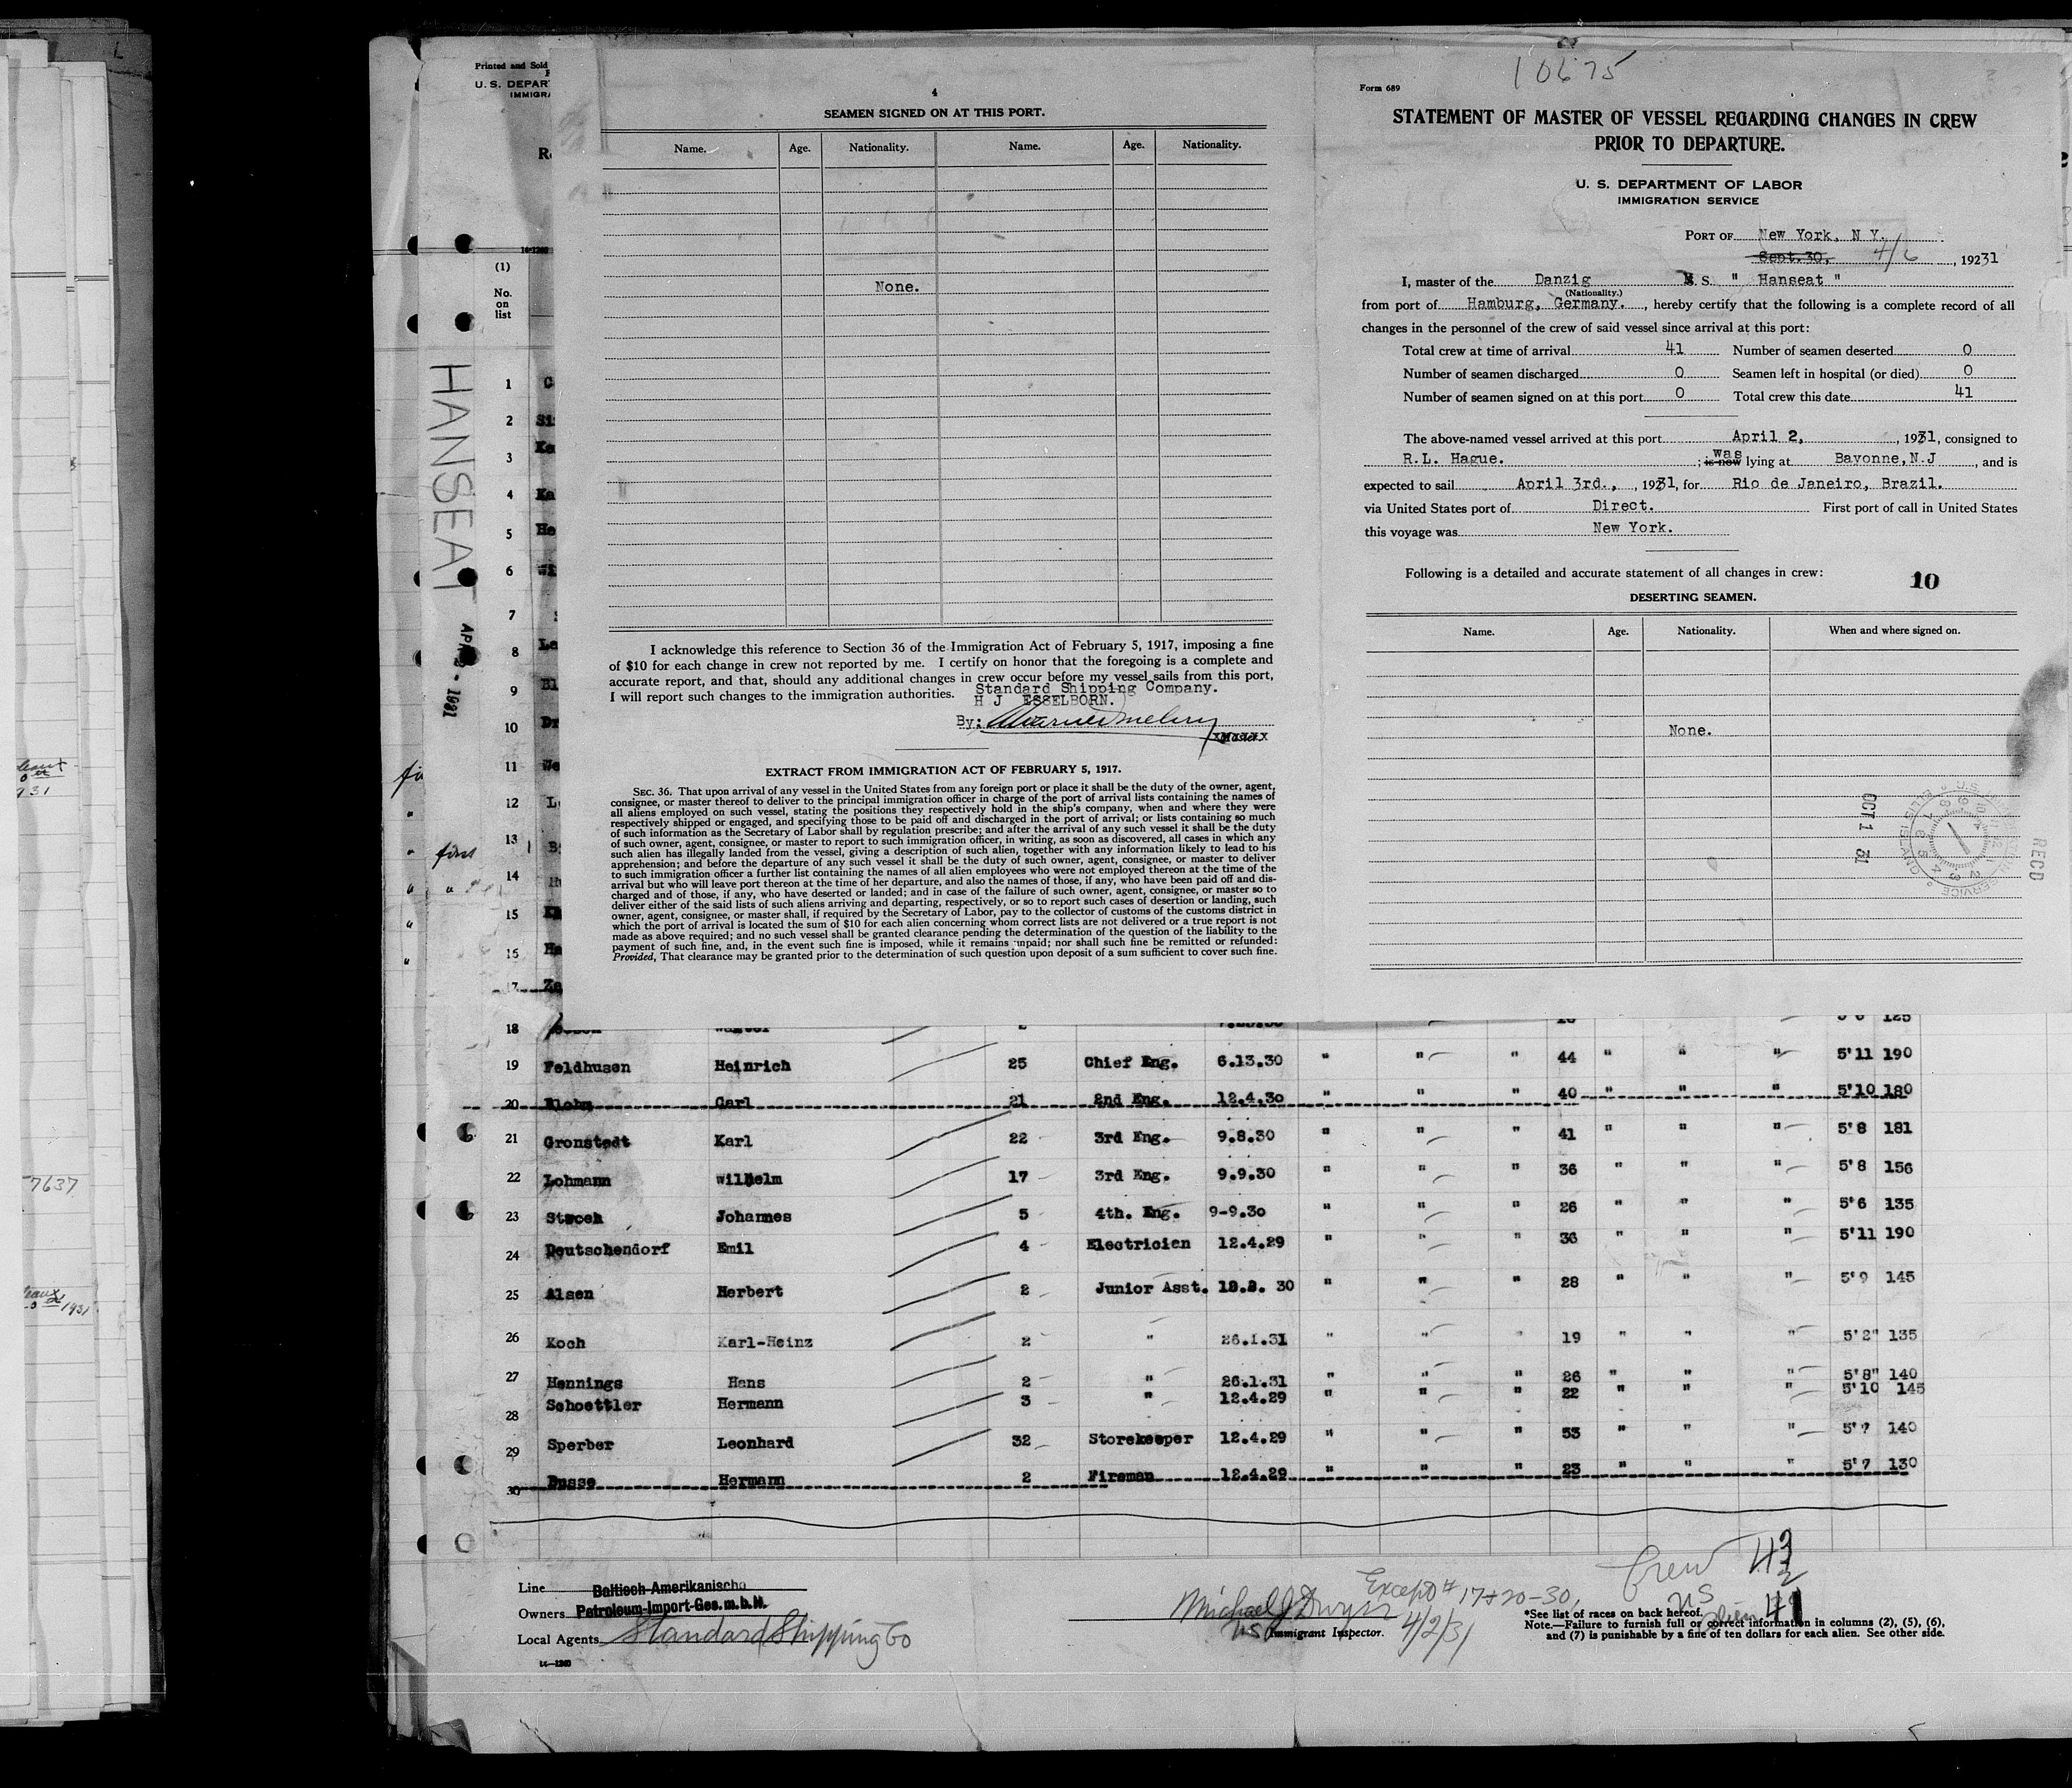 7637
Printed and Sold
U. S. DEPAR
IMMIGRA
(1)
No.
on
list
HANSEAT
1931
4
SEAMEN SIGNED ON AT THIS PORT.
Name. Age. Nationality. Name. Age. Nationality.
None.
I acknowledge this reference to Section 36 of the Immigration Act of February 5, 1917, imposing a fine
of $10 for each change in crew not reported by me. I certify on honor that the foregoing is a complete and
accurate report, and that, should any additional changes in crew occur before my vessel sails from this port,
I will report such changes to the immigration authorities. Standard Shipping Company.
H J ESSELBORN.
By:
Master.
EXTRACT FROM IMMIGRATION ACT OF FEBRUARY 5, 1917.
SEC. 36. That upon arrival of any vessel in the United States from any foreign port or place it shall be the duty of the owner, agent,
consignee, or master thereof to deliver to the principal immigration officer in charge of the port of arrival lists containing the names of
all aliens employed on such vessel, stating the positions they respectively hold in the ship's company, when and where they were
respectively shipped or engaged, and specifying those to be paid off and discharged in the port of arrival; or lists containing so much
of such information as the Secretary of Labor shall by regulation prescribe; and after the arrival of any such vessel it shall be the duty
of such owner, agent, consignee, or master to report to such immigration officer, in writing, as soon as discovered, all cases in which any
such alien has illegally landed from the vessel, giving a description of such alien, together with any information likely to lead to his
apprehension; and before the departure of any such vessel it shall be the duty of such owner, agent, consignee, or master to deliver
to such immigration officer a further list containing the names of all alien employees who were not employed thereon at the time of the
arrival but who will leave port thereon at the time of her departure, and also the names of those, if any, who have been paid off and dis-
charged and of those, if any, who have deserted or landed; and in case of the failure of such owner, agent, consignee, or master so to
deliver either of the said lists of such aliens arriving and departing, respectively, or so to report such cases of desertion or landing, such
owner, agent, consignee, or master shall, if required by the Secretary of Labor, pay to the collector of customs of the customs district in
which the port of arrival is located the sum of $10 for each alien concerning whom correct lists are not delivered or a true report is not
made as above required; and no such vessel shall be granted clearance pending the determination of the question of the liability to the
payment of such fine, and, in the event such fine is imposed, while it remains unpaid; nor shall such fine be remitted or refunded:
Provided, That clearance may be granted prior to the determination of such question upon deposit of a sum sufficient to cover such fine.
10675
Form 689
STATEMENT OF MASTER OF VESSEL REGARDING CHANGES IN CREW
PRIOR TO DEPARTURE.
U. S. DEPARTMENT OF LABOR
IMMIGRATION SERVICE
PORT OF New York, N Y.
Sept.30, 4/6, 19231
I, master of the Danzig S. S. " Hanseat "
(Nationality.)
from port of Hamburg, Germany., hereby certify that the following is a complete record of all
changes in the personnel of the crew of said vessel since arrival at this port:
Total crew at time of arrival 41 Number of seamen deserted 0
Number of seamen discharged 0 Seamen left in hospital (or died) 0
Number of seamen signed on at this port 0 Total crew this date 41
The above-named vessel arrived at this port April 2, , 1931, consigned to
R.L. Hague. ; is now was lying at Bayonne,N.J , and is
expected to sail April 3rd., , 1931, for Rio de Janeiro, Brazil.
via United States port of Direct. First port of call in United States
this voyage was New York.
Following is a detailed and accurate statement of all changes in crew:
10
DESERTING SEAMEN.
Name. Age. Nationality. When and where signed on.
None.
OCT 1 31
RECD
1
2
3
4
5
6
7
8
9
10
11
12
13
14
15
15
17
18
19 Feldhusen Heinrich 25 Chief Eng. 6.13.30 " " " 44 " " " 5'11 190
20 Blohm Carl 21 2nd Eng. 12.4.30 " " " 40 " " " 5'10 180
21 Gronstedt Karl 22 3rd Eng. 9.8.30 " " " 41 " " " 5'8 181
22 Lohmann Wilhelm 17 3rd Eng. 9.9.30 " " " 36 " " " 5'8 156
23 Johannes 5 4th. Eng. 9-9.30 " " " 26 " " " 5'6 135
24 Deutschendorf Emil 4 Electricien 12.4.29 " " " 36 " " " 5'11 190
25 Alsen Herbert 2 Junior Asst. 30 " " " 28 " " " 5'9 145
26 Koch Karl-Heinz 2 " 26.1.31 " " " 19 " " " 5'2" 135
27 Hennings Hans 2 " 26.1.31 " " " 26 " " " 5'8" 140
28 Schoettler Hermann 3 " 12.4.29 " " " 22 " " " 5'10 145
29 Sperber Leonhard 32 Storekeeper 12.4.29 " " " 53 " " " 5'7 140
30 Busse Hermann 2 Fireman 12.4.29 " " " 23 " " " 5'7 130
Line Baltisch-Amerikanische
Owners Petroleum-Import-Ges.m.b.H.
Local Agents Standard Shipping Co
Michael J Dwyer Except # 17+20-30,
Immigrant Inspector. 4/2/31
Crew 43
US
alien 41
*See list of races on back hereof.
Note.—Failure to furnish full or correct information in columns (2), (5), (6),
and (7) is punishable by a fine of ten dollars for each alien. See other side.
14—1240